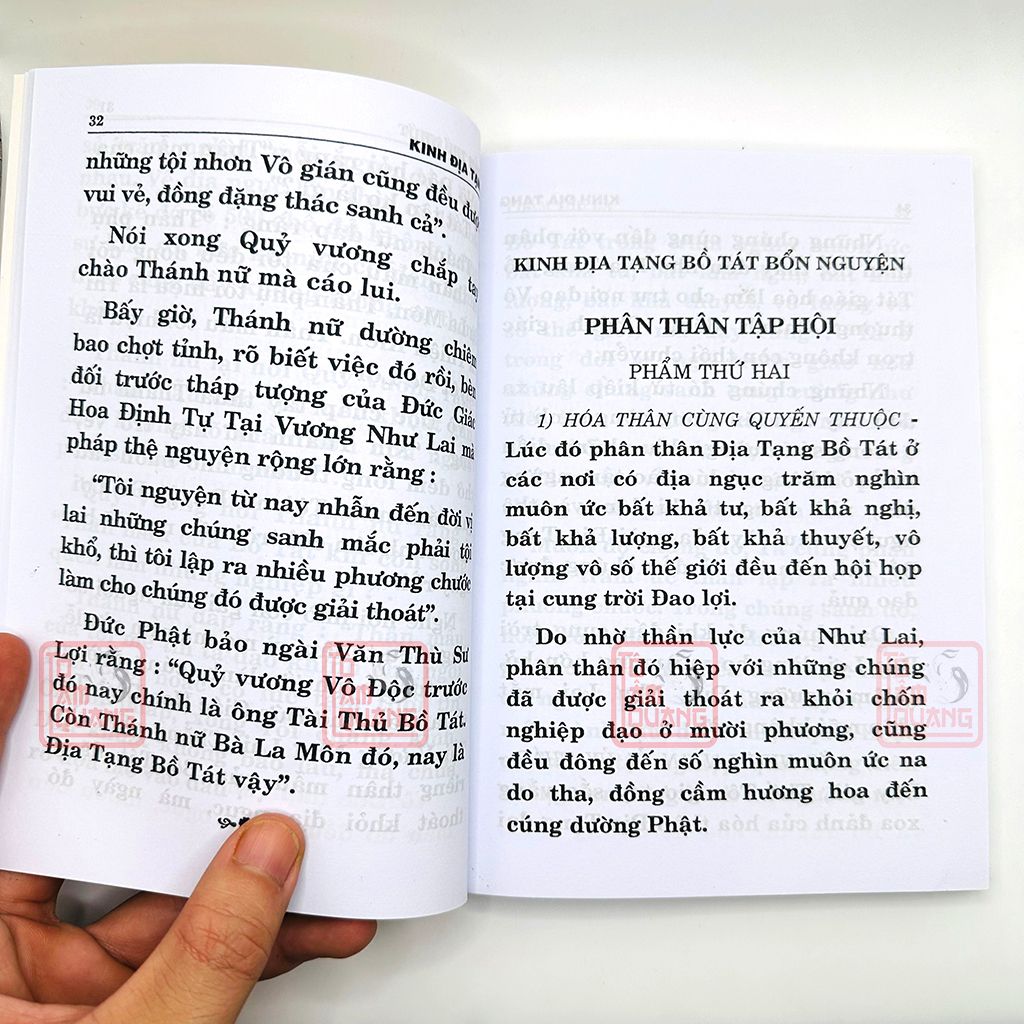 32
KINH ĐỊA
những tội nhơn Vô gián cũng đều
vui vẻ, đồng đặng thác sanh cả”.
Nói xong Quỷ vương chắp
chào Thánh nữ mà cáo lui.
Bấy giờ, Thánh nữ dường chiêm
bao chợt tỉnh, rõ biết việc đó rồi, bèn
đối trước tháp tượng của Đức Giác
Hoa Định Tự Tại Vương Như Lai mà
pháp thệ nguyện rộng lớn rằng :
“Tôi nguyện từ nay nhẫn đến đời vị
lai những chúng sanh mắc phải tội
khổ, thì tôi lập ra nhiều phương chước
làm cho chúng đó được giải thoát”.
Đức Phật bảo ngài Văn Thù Sư
Lợi rằng : “Quỷ vương Vô Độc trước
đó nay chính là ông Tài Thủ Bồ Tát.
Còn Thánh nữ Bà La Môn đó, nay là
Địa Tạng Bồ Tát vậy”.
KINH ĐỊA TẠNG BỒ TÁT BỔN NGUYỆN
PHÂN THÂN TẬP HỘI
PHẨM THỨ HAI
1) HÓA THÂN CÙNG QUYẾN THUỘC -
Lúc đó phân thân Địa Tạng Bồ Tát ở
các nơi có địa ngục trăm nghìn
muôn ức bất khả tư, bất khả nghị,
bất khả lượng, bất khả thuyết, vô
lượng vô số thế giới đều đến hội họp
tại cung trời Đao lợi.
Do nhờ thần lực của Như Lai,
phân thân đó hiệp với những chúng
đã được giải thoát ra khỏi chốn
nghiệp đạo ở mười phương, cũng
đều đông đến số nghìn muôn ức na
do tha, đồng cầm hương hoa đến
cúng dường Phật.